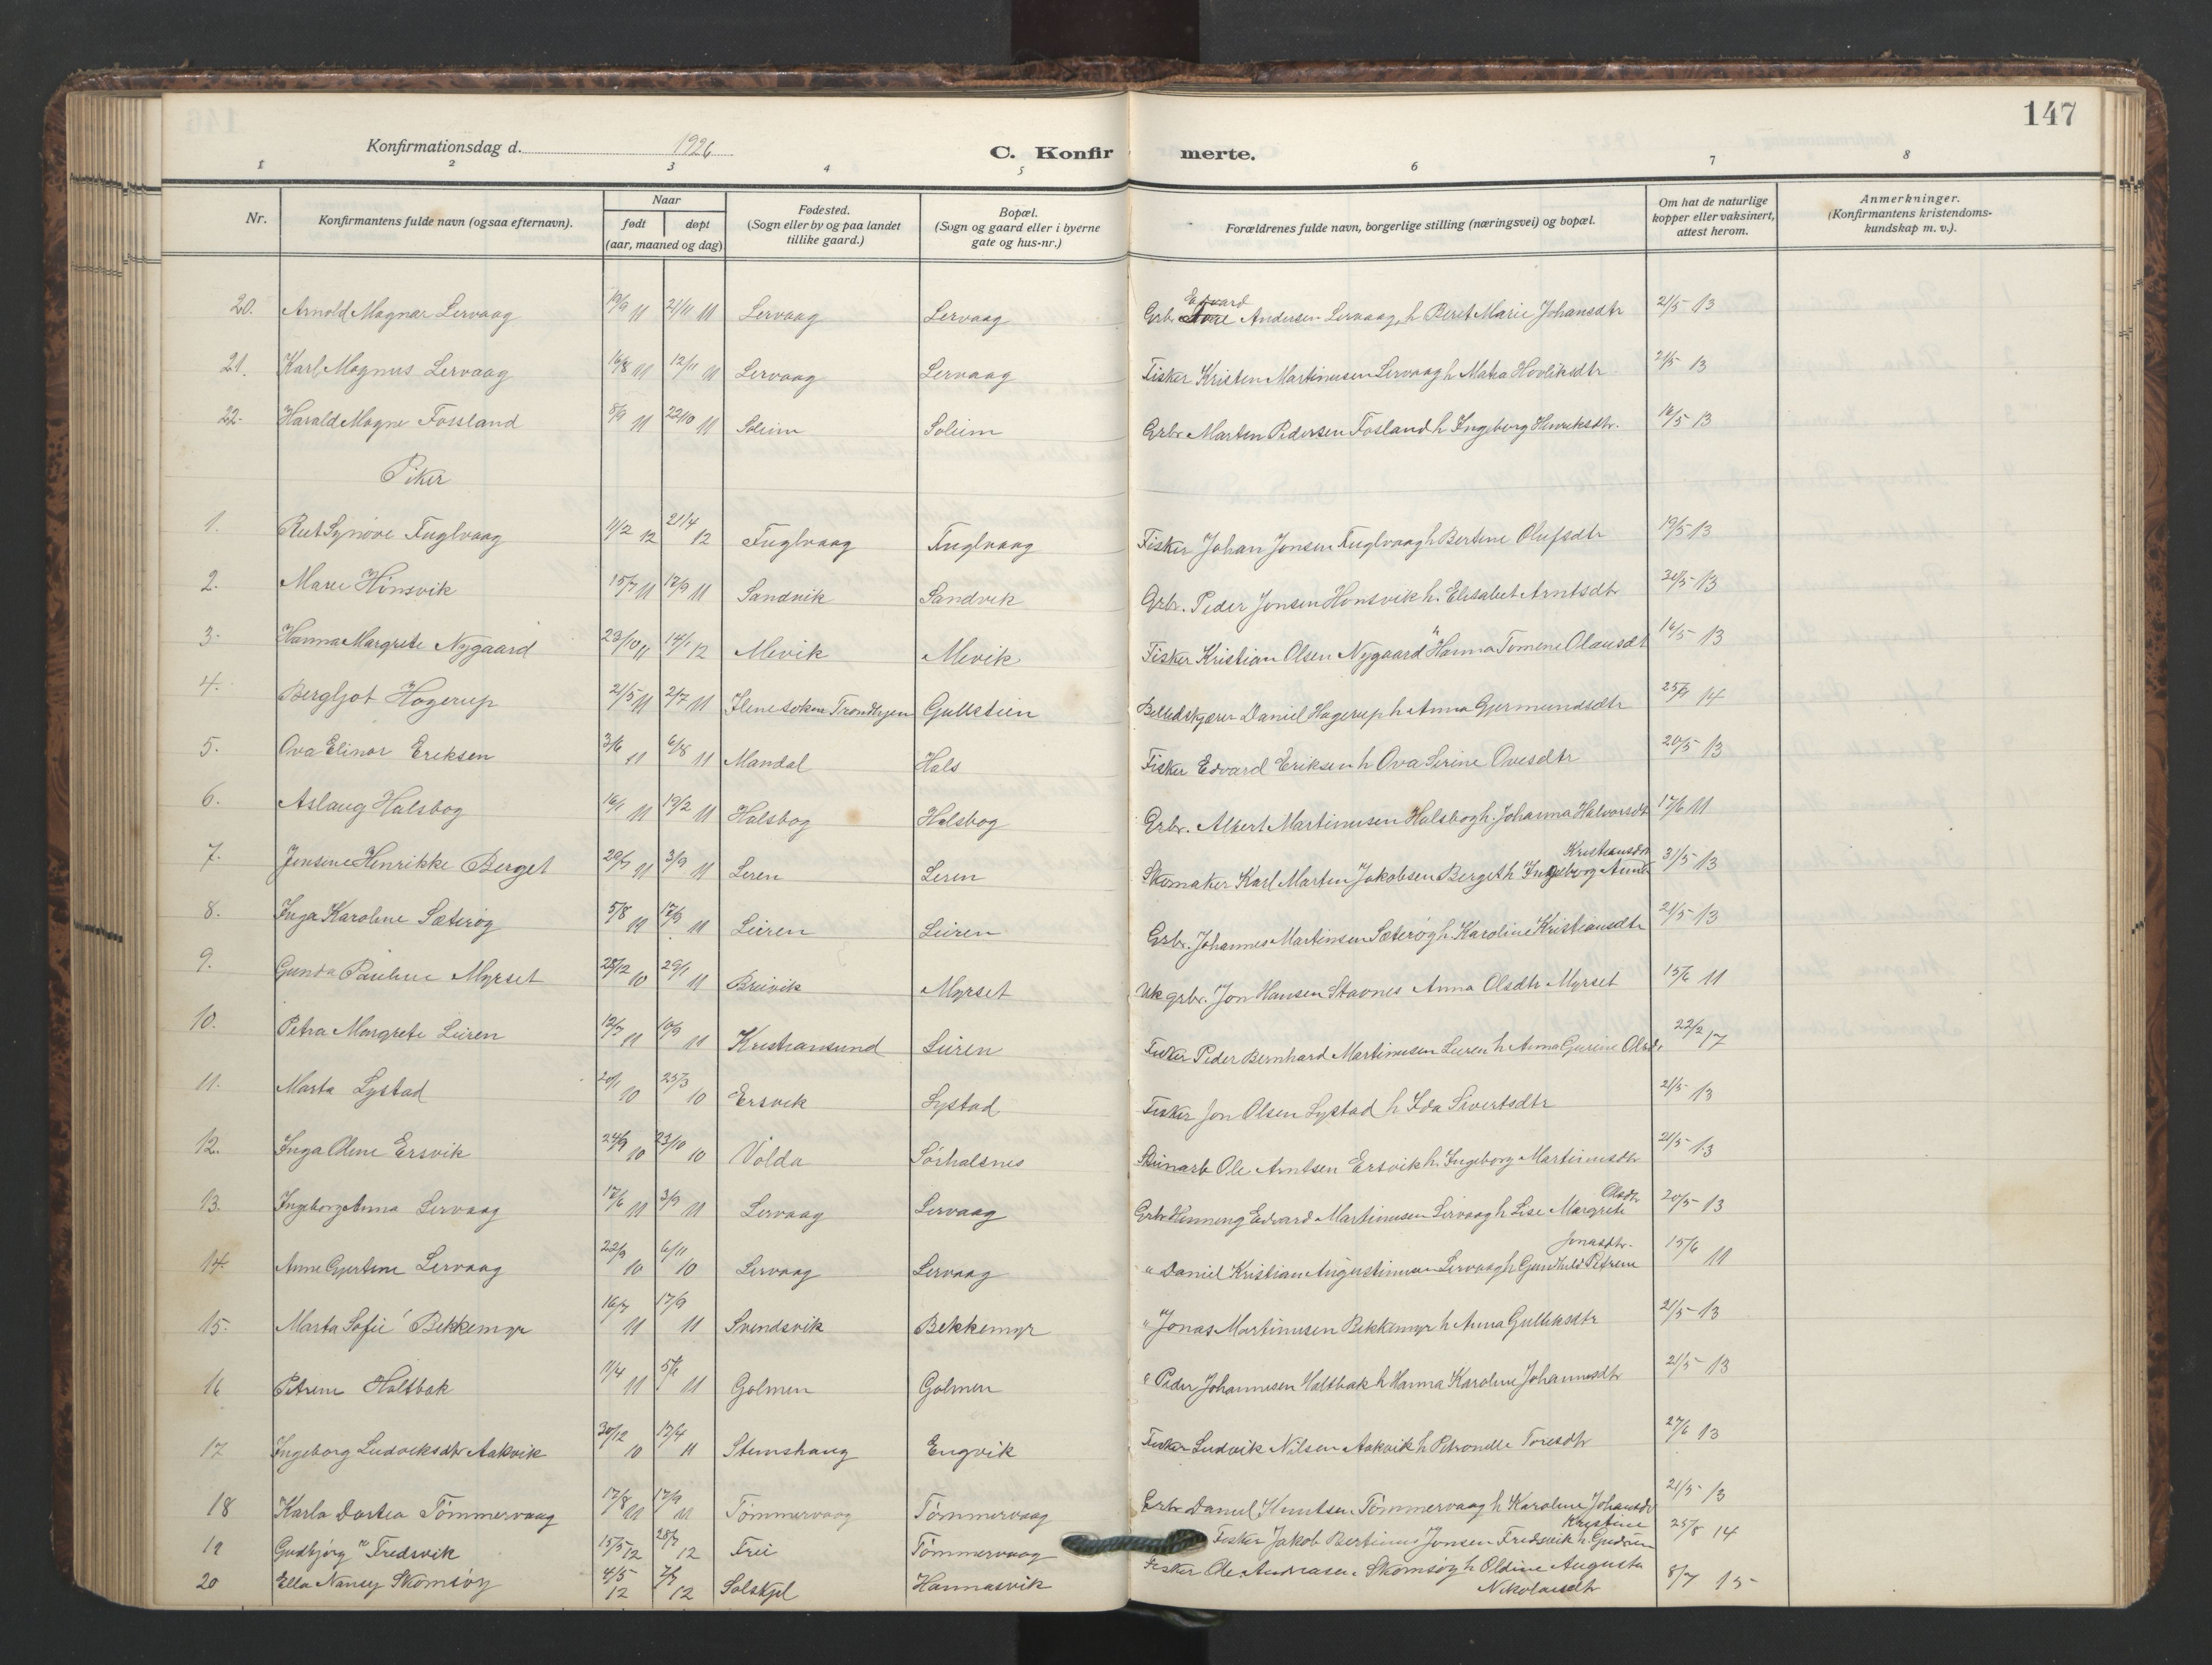 147
Konfirmationsdag d. 1926
C. Konfirmerte.
1 2 3 4 5 6 7 8
Nr. Konfirmantens fulde navn (ogsaa efternavn). Naar født døpt (aar, maaned og dag) Fødested. (Sogn eller by og paa landet tillike gaard.) Bopæl. (Sogn og gaard eller i byerne gate og hus-nr.) Forældrenes fulde navn, borgerlige stilling (næringsvei) og bopæl. Om hat de naturlige kopper eller vaksinert, attest herom. Anmerkninger. (Konfirmantens kristendoms-kundskap m. v.).
20. Arnold Magnar Lervaag 19/9 11 21/11 11 Lervaag Lervaag Grb. Edvard Andersen Lervaag, h Beret Marie Johansdtr 21/5 13
21. Karl Magnus Lervaag 16/8 11 12/11 11 Lervaag Lervaag Fisker Kristen Martinusen Lervaag h Matea Hovliksdtr 21/5 13
22. Harald Magne Fossland 8/9 11 22/10 11 Soleim Soleim Grbr. Marten Pedersen Fosland h Ingeborg Henriksdtr. 16/5 13
Piker
1. Rut Synøve Fuglvaag 11/2 12 21/4 12 Fuglvaag Fuglvaag Fisker Johan Jonsen Fuglvaag h Bertine Olufsdtr 19/5 13
2. Marie Hønsvik 15/7 11 17/9 11 Sandvik Sandvik Grbr. Peder Jonsen Hønsvik h. Elisabet Arntsdtr 13
3. Hanna Margrete Nygaard 23/10 11 14/1 12 Mevik Mevik Fisker Kristian Olsen Nygaard h Hanna Tomene Olausdt 16/5 13
4. Bergljot Hagerup 21/5 11 2/7 11 Ilenesoken Trondhjem Gullstein Billedskjærer Daniel Hagerup h Anna Gjermundsdtr 14
5. Ova Elinor Eriksen 3/6 11 6/8 11 Mandal Hals Fisker Edvard Eriksen h Ova Serine Ovesdtr 20/5 13
6. Aslaug Halsbog 16/1 11 19/2 11 Halsbog Halsbog Grbr. Albert Martinusen Halsbog h. Johanna Halvorsdt 17/6 11
7. Jensine Henrikke Berget 20/7 11 3/9 11 Leren Leren Skomaker Karl Marten Jakobsen Berget h Ingeborg Anna Kristiansdtr 31/5 13
8. Inga Karoline Sæterøy 5/8 11 17/9 11 Leiren Leiren Grbr. Johannes Martinsen Sæterøy h. Karoline Kristiansdtr 21/5 13
9. Gunda Pauline Myrset 28/12 10 29/1 11 Breivik Myrset Uk grbr. Jon Hansen Stavnes Anna Olsdtr Myrset 15/6 11
10. Petra Margrete Leiren 12/7 11 10/9 11 Kristiansund Leiren Fisker Peder Bernhard Martinusen Leiren h Anna Gurine Olsd. 22/2 17
11. Marta Lystad 20/1 10 25/3 10 Ersvik Lystad Fisker Jon Olsen Lystad h Ida Sivertsdtr 21/5 13
12. Inga Oline Ersvik 24/9 10 23/10 10 Volda Sørhalsnes Stenarb Ole Arntsen Ersvik h. Ingeborg Martinusdtr 21/5 13
13. Ingeborg Anna Lervaag 17/6 11 3/9 11 Lervaag Lervaag Grbr Henning Edvard Martinusen Lervaag h Lise Margrete Olsdtr 20/5 13
14 Anne Gjertine Lervaag 22/9 10 6/11 10 Lervaag Lervaag " Daniel Kristian Augustinusen Lervaag h Gunhild Petrine Jonasdtr. 15/6 11
15. Marta Sofie Bekkemyr 16/7 11 17/9 11 Svendsvik Bekkemyr " Jonas Martinusen Bekkemyr h Anna Gulleksdtr 21/5 13
16 Petrine Holtbak 11/4 11 11 Golmen Golmen " Peder Johannesen Holtbak h Hanna Karoline Johannesdtr 21/5 13
17 Ingeborg Ludviksdtr Aakvik 30/12 10 17/4 11 Stemshaug Engvik Fisker Ludvik Nilsen Aakvik h Petronelle Toresdtr 27/6 13
18 Karla Dortea Tömmervaag 17/8 11 17/9 11 Tömmervaag Tömmervaag Grbr Daniel Knutsen Tömmervaag h Karoline Johansdtr 21/5 13
19 Gudbjörg Fredsvik 15/5 12 12 Frei Tömmervaag Fisker Jakob Bertinus Jonsen Fredsvik h Gudrun Kristine 25/8 14
20 Ella Nancy Skomsöy 4/5 12 7/7 12 Solskjel Hannasvik Fisker Ole Andreasen Skomsöy h Oldine Augusta Nikolaisdtr 8/7 15